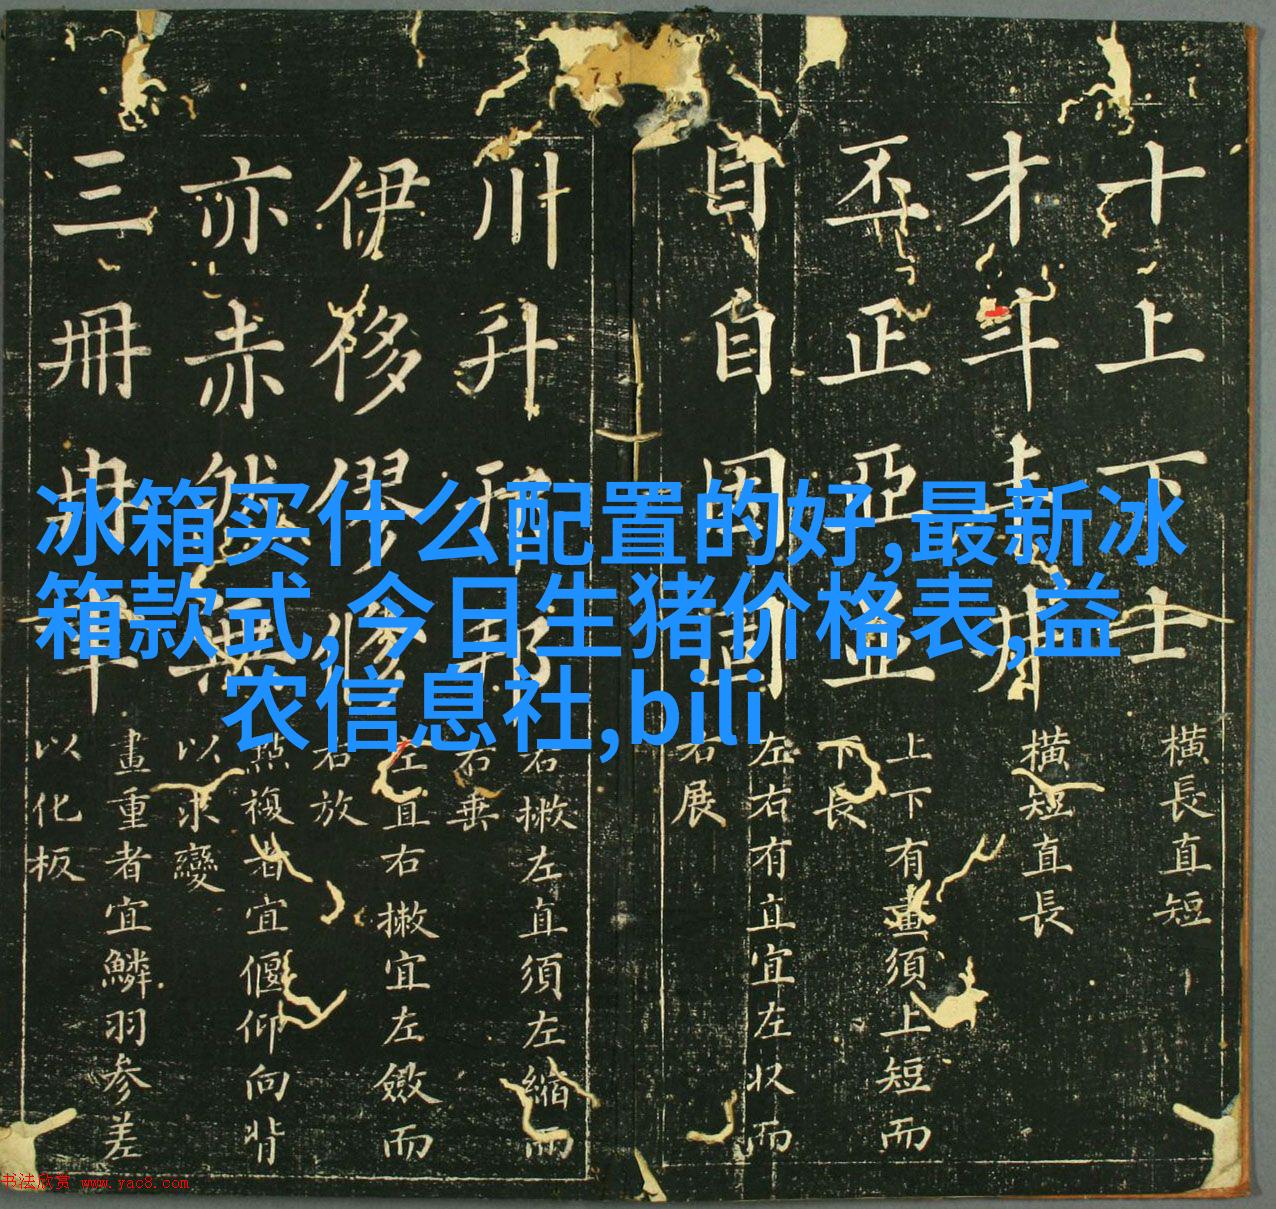 冰箱买什么配置的好,最新冰
箱款式,今日生猪价格表,益
农信息社,bili
十上下士
橫長直短
才斗
橫短直長
丕正亞
上下有畫須上短而
下長
目自因固
左右有直宜左收而
右展
川升邦
右撇左直須左縮而
右垂
伊侈僇修
左直右撇宜左斂而
右放
亦赤然無
點複者宜偃仰向背
以求變
三冊
畫重者宜鱗羽參差
以化板
书法欣赏 www.yac8.com